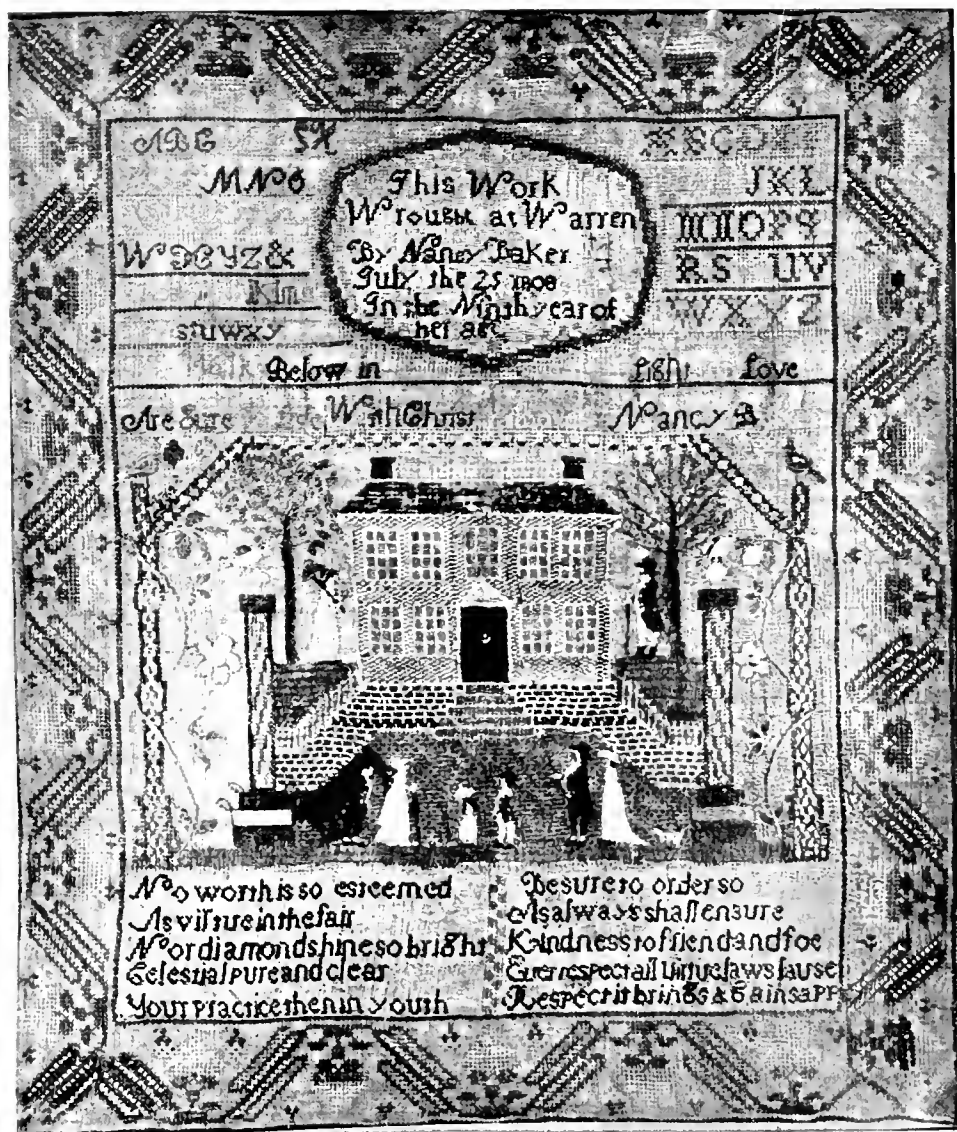 ABC
MNO
This Work
Wrought at Warren
By Nancy Baker
July the 25 1808
In the Ninth year of
her age
JKL
MNOPQ
RS UV
WXYZ
WXYZ&
stuwxy
Below in Light Love
Are Sure With Christ Nancy B
No worth is so esteemed
As virtue in the fair
Nor diamond shine so bright
Celestial pure and clear
Your practice then in youth
Be sure to order so
As always shall ensure
Kindness to friend and foe
Ever respect all virtue laws
Respect it brings & gains